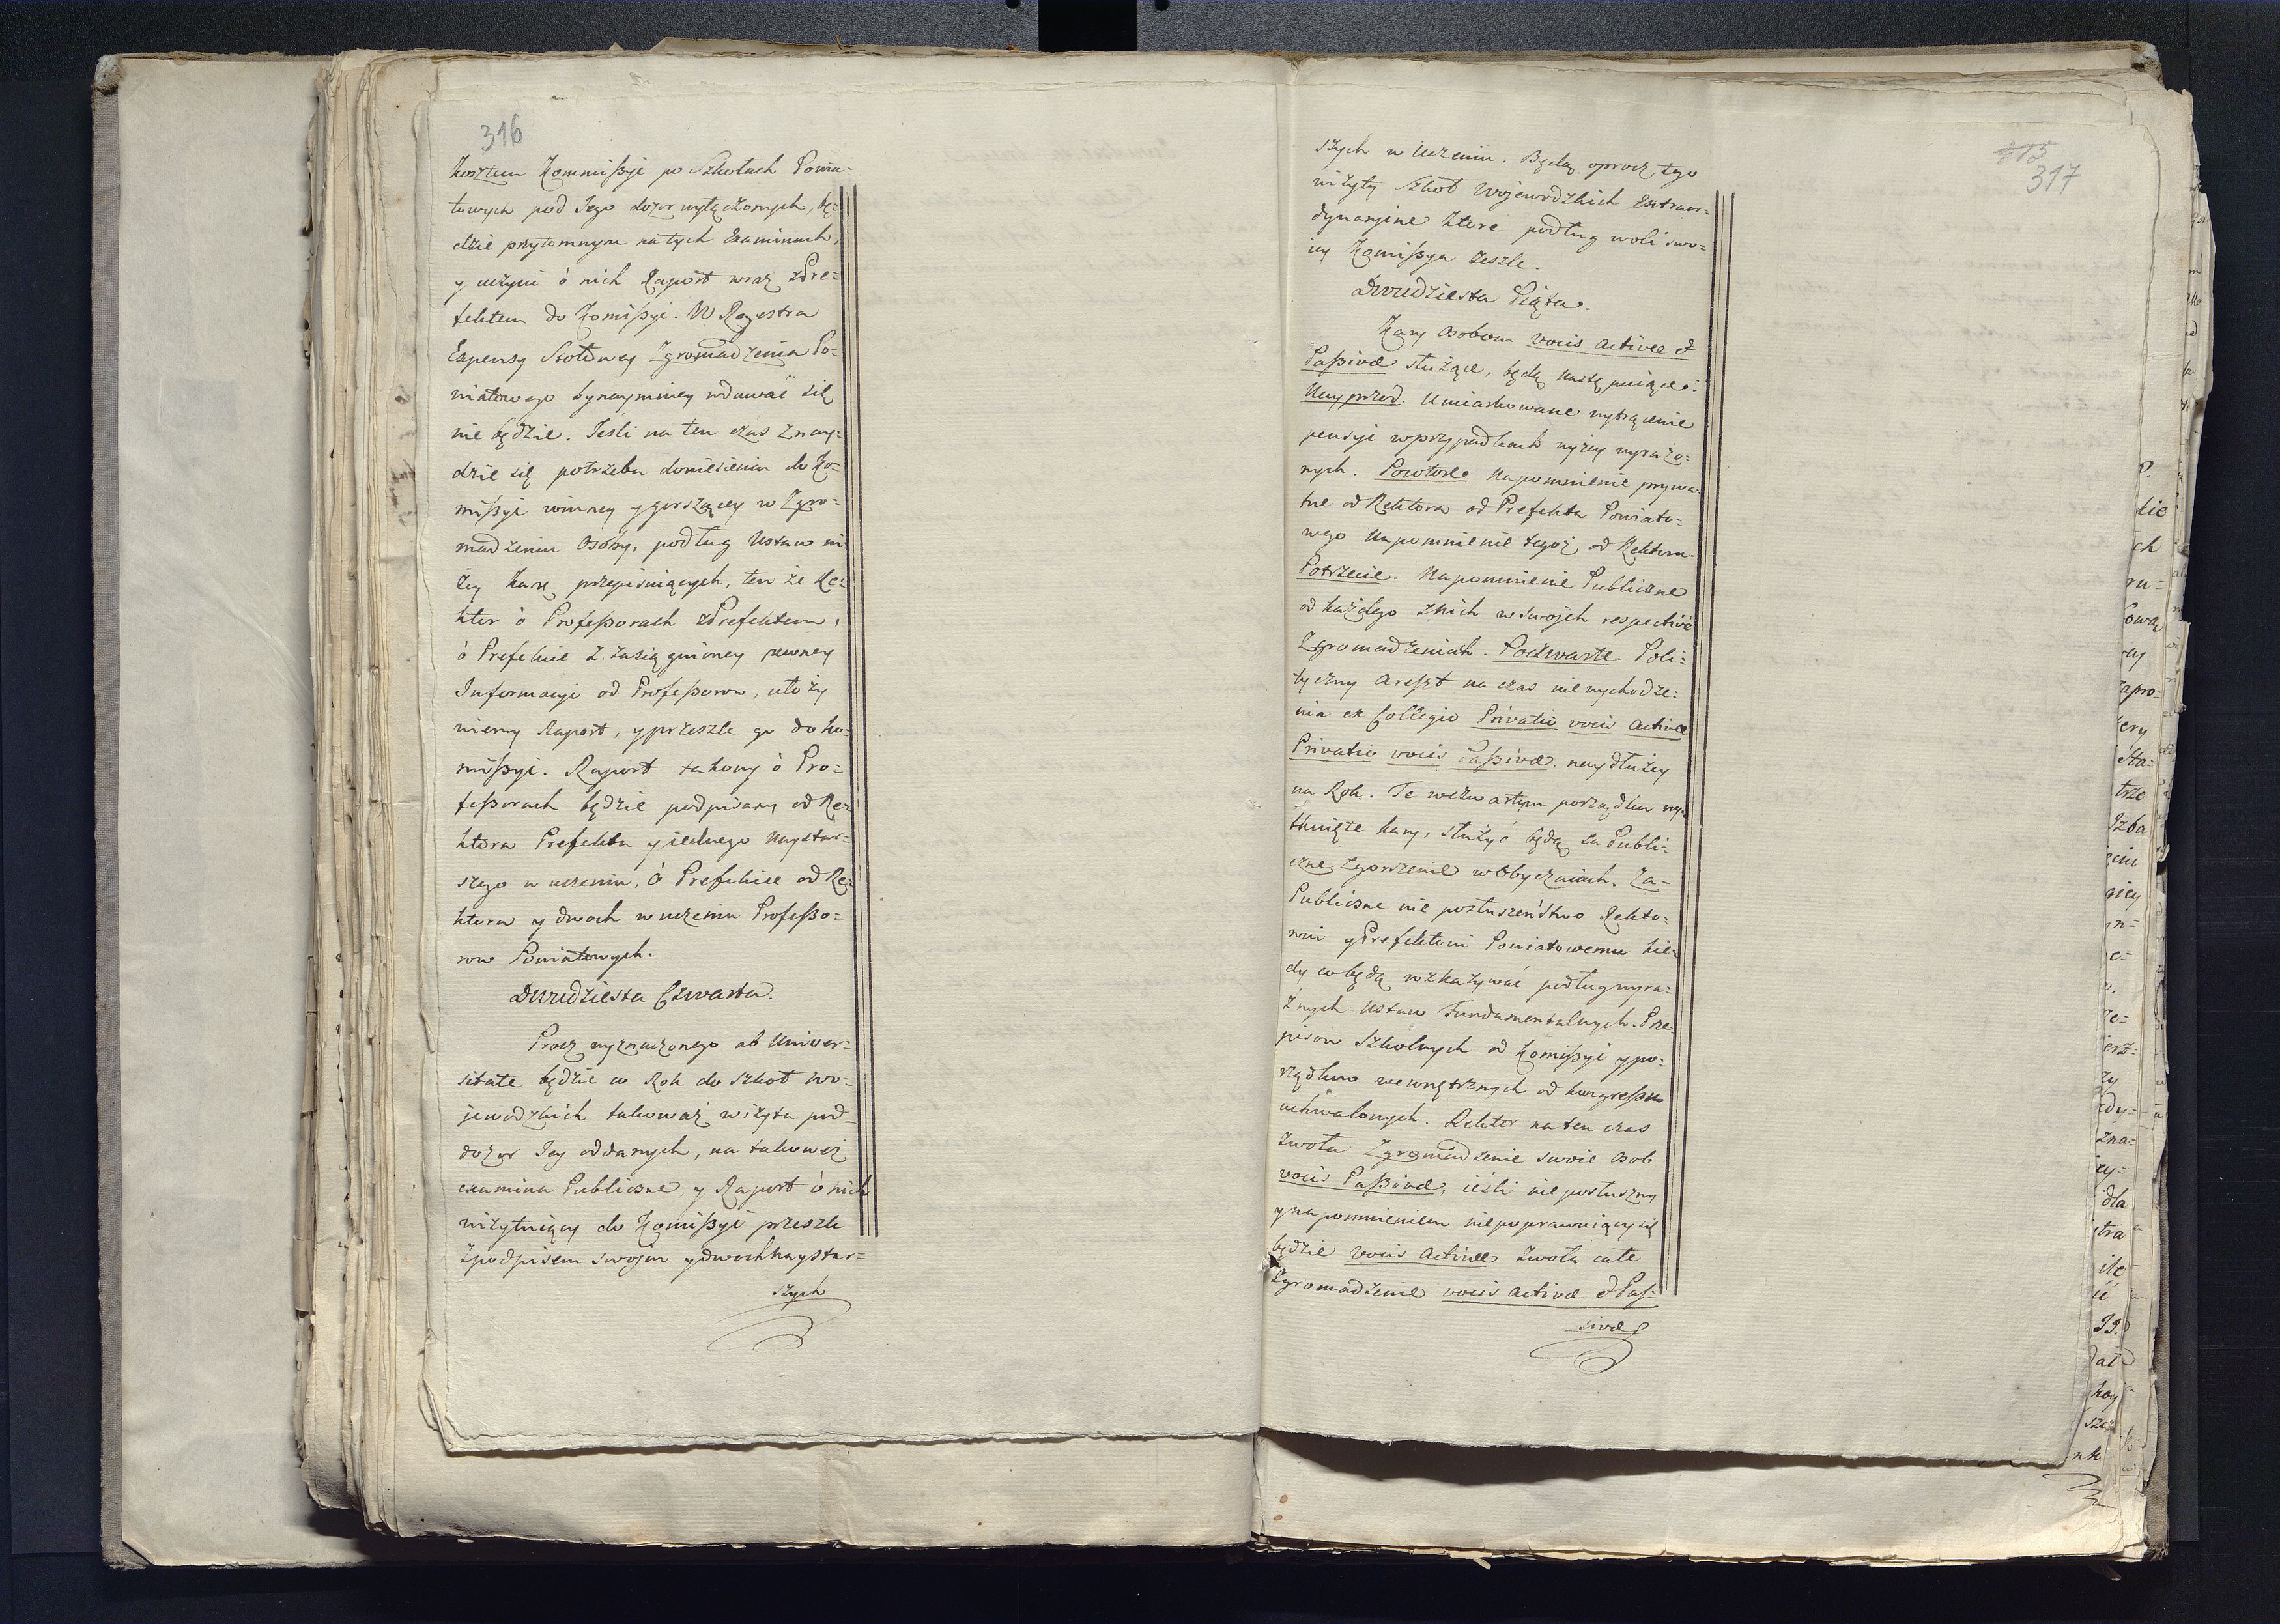 316
kosztem Kommißyi po Szkołach Powia-
towych pod Jego dozor wyłączonych, bę-
dzie przytomnym na tych Examinach,
y uczyni ó nich Raport wraz z Pre-
fektem do Komißyi. W Rejestra
Expensy Stołowey Zgromadzenia Po-
wiatowego bynaymniey wdawać się
nie będzie. Jeśli na ten czas znay-
dzie się potrzeba doniesienia do Ko-
mißyi winney y gorszącey w Zgro-
madzeniu Osoby, podług Ustaw ni-
żey karę przepisuiących, ten że Re-
ktor ó Profeßorach z Prefektem,
ó Prefekcie z zasiągnioney pewney
Informacyi od Profeßorow, ułoży
wierny Raport, y prześle go do Ko-
mißyi. Raport takowy ó Pro-
feßorach będzie podpisany od Re-
ktora Prefekta y iednego Naystar-
szego w uczeniu, ó Prefekcie od Re-
ktora y dwoch w uczeniu Profeßo-
row Powiatowych.
Dwudziesta Czwarta.
Procz wyznaczonego ab Univer-
sitate będzie co Rok do Szkoł Wo-
jewodzkich takoważ wizyta pod
dozor Jey oddanych, na takoweż
examina Publiczne, y Raport ó nich
wizytuiący do Komißyi prześle
z podpisem swoim y dwoch Naystar-
szych
315
317
szych w Uczeniu. Będą oprocz tego
wizyty Szkoł Wojewodzkich Extraor-
dynaryine ktore podług woli swo-
iey Komißya ześle.
Dwudziesta Piąta.
Kary Osobom vocis activæ et
Paßivæ służące, będą następuiące:
Nayprzod. Umiarkowane wytrącenie
pensyi w przypadkach wyżey wyrażo-
nych. Powtore. Napomnienie prywa-
tne od Rektora od Prefekta Powiato-
wego Napomnienie tegoż od Rektora.
Potrzecie. Napomnienie Publiczne
od każdego z nich w swoich respectivè
Zgromadzeniach. Poczwarte. Poli-
tyczny Areszt na czas nie wychodze-
nia ex Collegio Privatio vocis activæ
Privatio vocis Paßivæ. naydłużey
na Rok. Te w czwartym porządku wy-
tknięte kary, służyć będą za Publi-
czne zgorszenie w Obyczaiach. Za
Publiczne nie posłuszeństwo Rekto-
rowi y Prefektowi Powiatowemu kie-
dy co będą wskazywać podług wyra-
źnych Ustaw Fundamentalnych. Prze-
pisow Szkolnych od Komißyi y po-
rządkow wewnętrznych od kongreßu
uchwalonych. Rektor na ten czas
zwoła Zgromadzenie swoie Osob
vocis Paßivæ, ieśli nie posłuszny
y napomnieniem niepoprawuiący się
będzie vocis activæ zwoła całe
Zgromadzenie vocis activæ et Pas-
sivæ